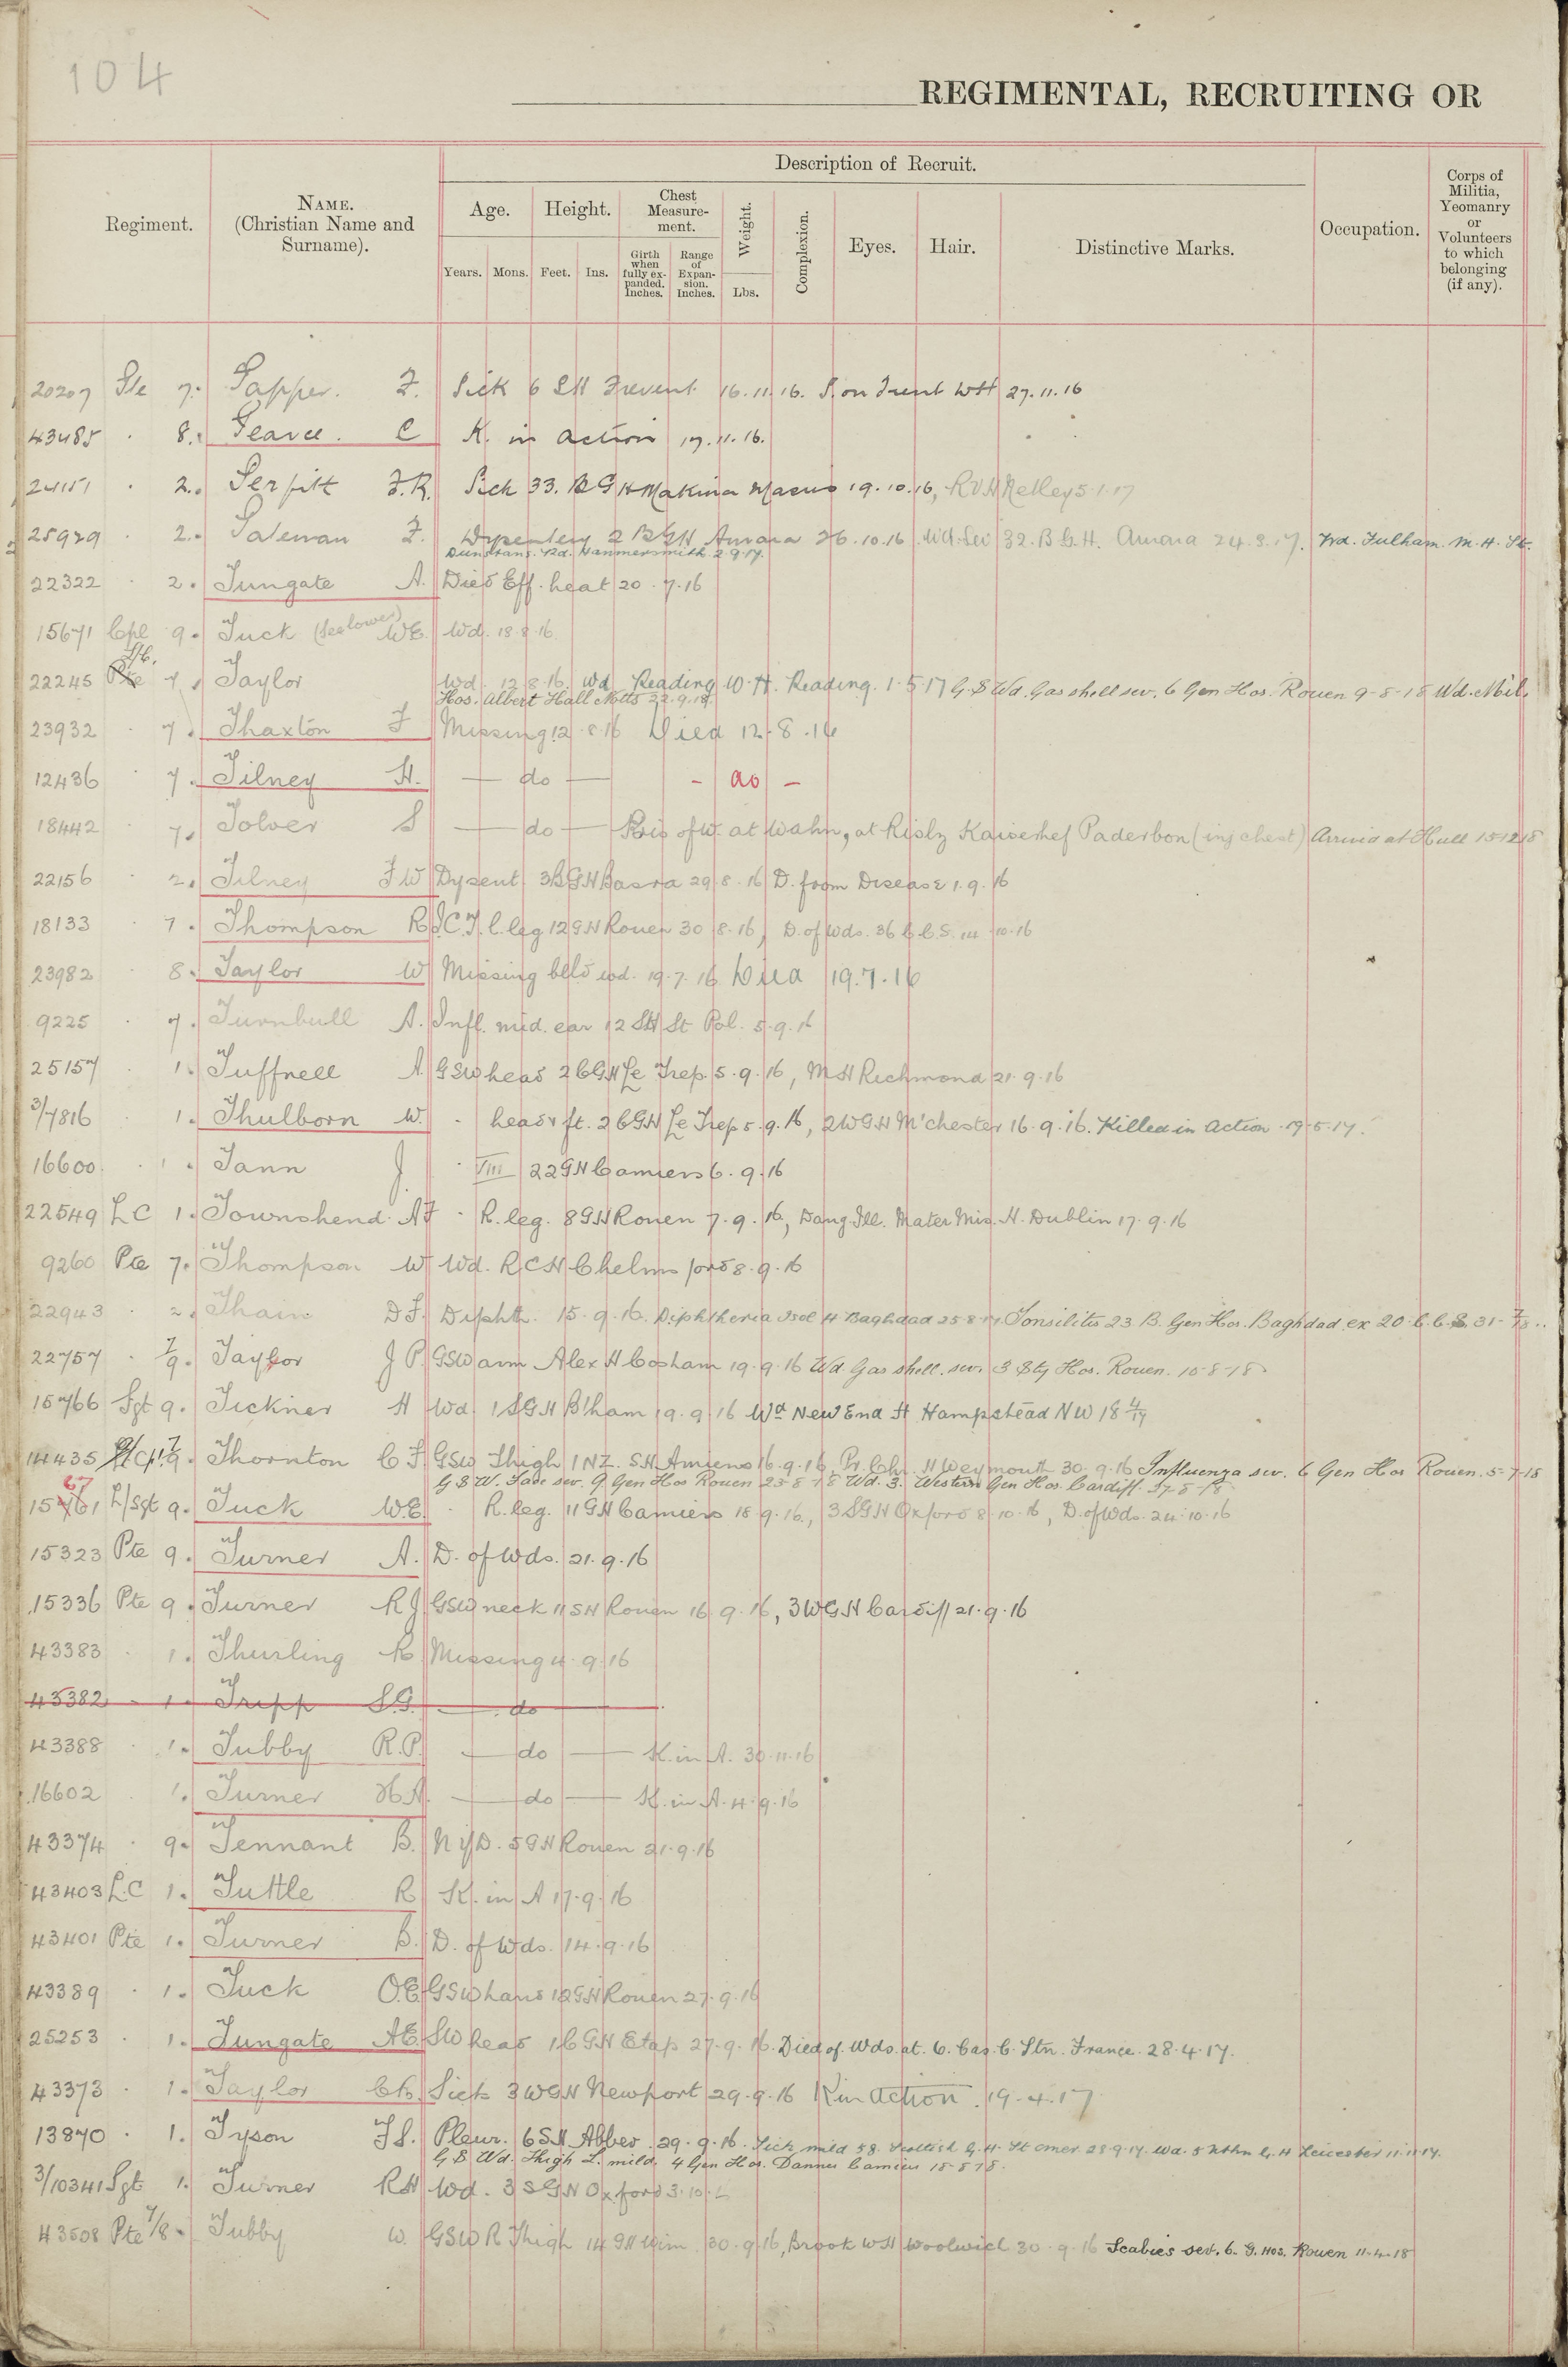 104
REGIMENTAL, RECRUITING OR
Description of Recruit.
Regiment.
NAME.
(Christian Name and
Surname).
Age.
Height.
Chest
Measure-
ment.
Weight.
Complexion.
Eyes.
Hair.
Distinctive Marks.
Occupation.
Corps of
Militia,
Yeomanry
or
Volunteers
to which
belonging
(if any).
Years.
Mons.
Feet.
Ins.
Girth
when
fully ex-
panded.
Inches.
Range
of
Expan-
sion.
Inches.
Lbs.
20207 Pte 7. Papper. F. Sick 6 SH Frevent 16.11.16. S. on Trent WH 27.11.16
43485 . 8. Pearce. C K. in action 17.11.16.
24151 . 2. Perfitt F.R. Sick 33. B G H Makina Masus 19.10.16, R V H Netley 5.1.17
25929 . 2. F. Dysentery 2 BGH Amara 26.10.16 Wd. Sev 32. B G.H. Amara 24.3.17. Fulham M.H. St.
Dunstans Rd. Hammersmith 2.9.17.
22322 . 2. Tungate A. Died Eff. heat 20.7.16
15671 Cpl 9. Tuck (see lower) W.E. Wd. 18.8.16
22245 Pte 7. Taylor Wd. 12.8.16. Wd Reading W.H. Reading. 1-5-17 G.S Wd. Gas shell sev. 6 Gen Hos. Rouen 9-8-18 Wd. Mil.
Hos. Albert Hall Notts 22.9.18.
23932 . 7. Thaxton F Missing 12.8.16 Died 12.8.16
12436 . 7. Tilney H. — do — - do -
18442 . 7. Tolver S — do — Pris of W. at Wahn, at Kaiserhof Paderbon (inj chest) Arrived at Hull 15.12.18
22156 . 2. Tilney F W Dysent 3BGH Basra 29.8.16 D. from Disease 1.9.16
18133 . 7. Thompson R.J. C.T. l. leg 12 GH Rouen 30.8.16, D. of Wds. 36 C.C.S. 14.10.16
23982 . 8. Taylor W Missing beld wd. 19.7.16 Died 19.7.16
9225 . 7. Turnbull A. Infl. mid. ear 12 SH St Pol. 5.9.16
25157 . 1. Tuffnell A GSW head 2 CGH Le Trep. 5.9.16, MH Richmond 21.9.16
3/7816 . 1. Thulborn W. . head & ft. 2 CGH Le Trep 5.9.16, 2WGH M'chester 16.9.16. Killed in action. 19.5.17.
16600 . 1. Tann J . VIII 22 GH Camiers 6.9.16
22549 L C 1. Townshend A F . R. leg. 8 GH Rouen 7.9.16, Dang. Ill. Mater Mis. H. Dublin 17.9.16
9260 Pte 7. Thompson W Wd. R C H Chelmsford 8.9.16
22943 . 2. Thain D F. Diphth. 15.9.16. Diphtheria Isol H Baghdad 25.8.17. Tonsilitis 23 B. Gen Hos. Baghdad ex 20 C.C.S. 31-7/18..
22757 . 7/9. Taylor J P. GSW arm Alex H Cosham 19.9.16 Wd Gas shell. sev. 3 Sty Hos. Rouen. 10-8-18
15766 Sgt 9. Tickner H Wd. 1 SGH B'ham 19.9.16 Wd New End H Hampstead N W 18 4/17
14435 7/9. Thornton C F. GSW Thigh 1 NZ. SH Amiens 16.9.16, H Weymouth 30.9.16 Influenza sev. 6 Gen Hos Rouen. 5-7-18
G S W. Face sev. 9 Gen Hos Rouen 25-8-18 Wd. 3. Western Gen Hos. Cardiff. 27-8-18
15671 L/Sgt 9. Tuck W.E. . R. leg. 11 GH Camiers 18.9.16., 3 SGH Oxford 8.10.16, D. of Wds. 24.10.16
15323 Pte 9. Turner A. D. of Wds. 21.9.16
15336 Pte 9. Turner R J GSW neck 11 SH Rouen 16.9.16, 3WGH Cardiff 21.9.16
43383 . 1. Thurling R Missing 4.9.16
43382 . 1. Tripp S.G. — do
43388 . 1. Tubby R.P. — do — K. in A. 30.11.16
16602 . 1. Turner H.A. — do — K. in A. 4.9.16
43374 . 9. Tennant B. N Y D. 5 GH Rouen 21.9.16
43403 L.C 1. Tuttle R K. in A 17.9.16
43401 Pte 1. Turner B. D. of Wds. 14.9.16
43389 . 1. Tuck O.E. GSW hand 12 GH Rouen 27.9.16
25253 . 1. Tungate A E. SW head 1 C GH Etap 27.9.16. Died of Wds. at. 6. Cas. C. Stn. France. 28.4.17.
43373 . 1. Taylor Ch. Sick 3 WGH Newport 29.9.16 K in action. 19.4.17
13870 . 1. Tyson F S. Pleur. 6 SH Abbev. 29.9.16. Sick mild 58. Scottish G.H. St Omer 28.9.17. Wd. 5 Nthn G. H Leicester 11.11.17.
G S Wd. Thigh L. mild. 4 Gen Hos. Dannes Camiers 18-8-18.
3/10341 Sgt 1. Turner R H Wd. 3 SGH Oxford 3.10.
43508 Pte 7/8. Tubby W. GSW R Thigh 14 GH Wim. 30.9.16, Brook WH Woolwich 30.9.16 Scabies sev. 6. G. Hos. Rouen 11-4-18